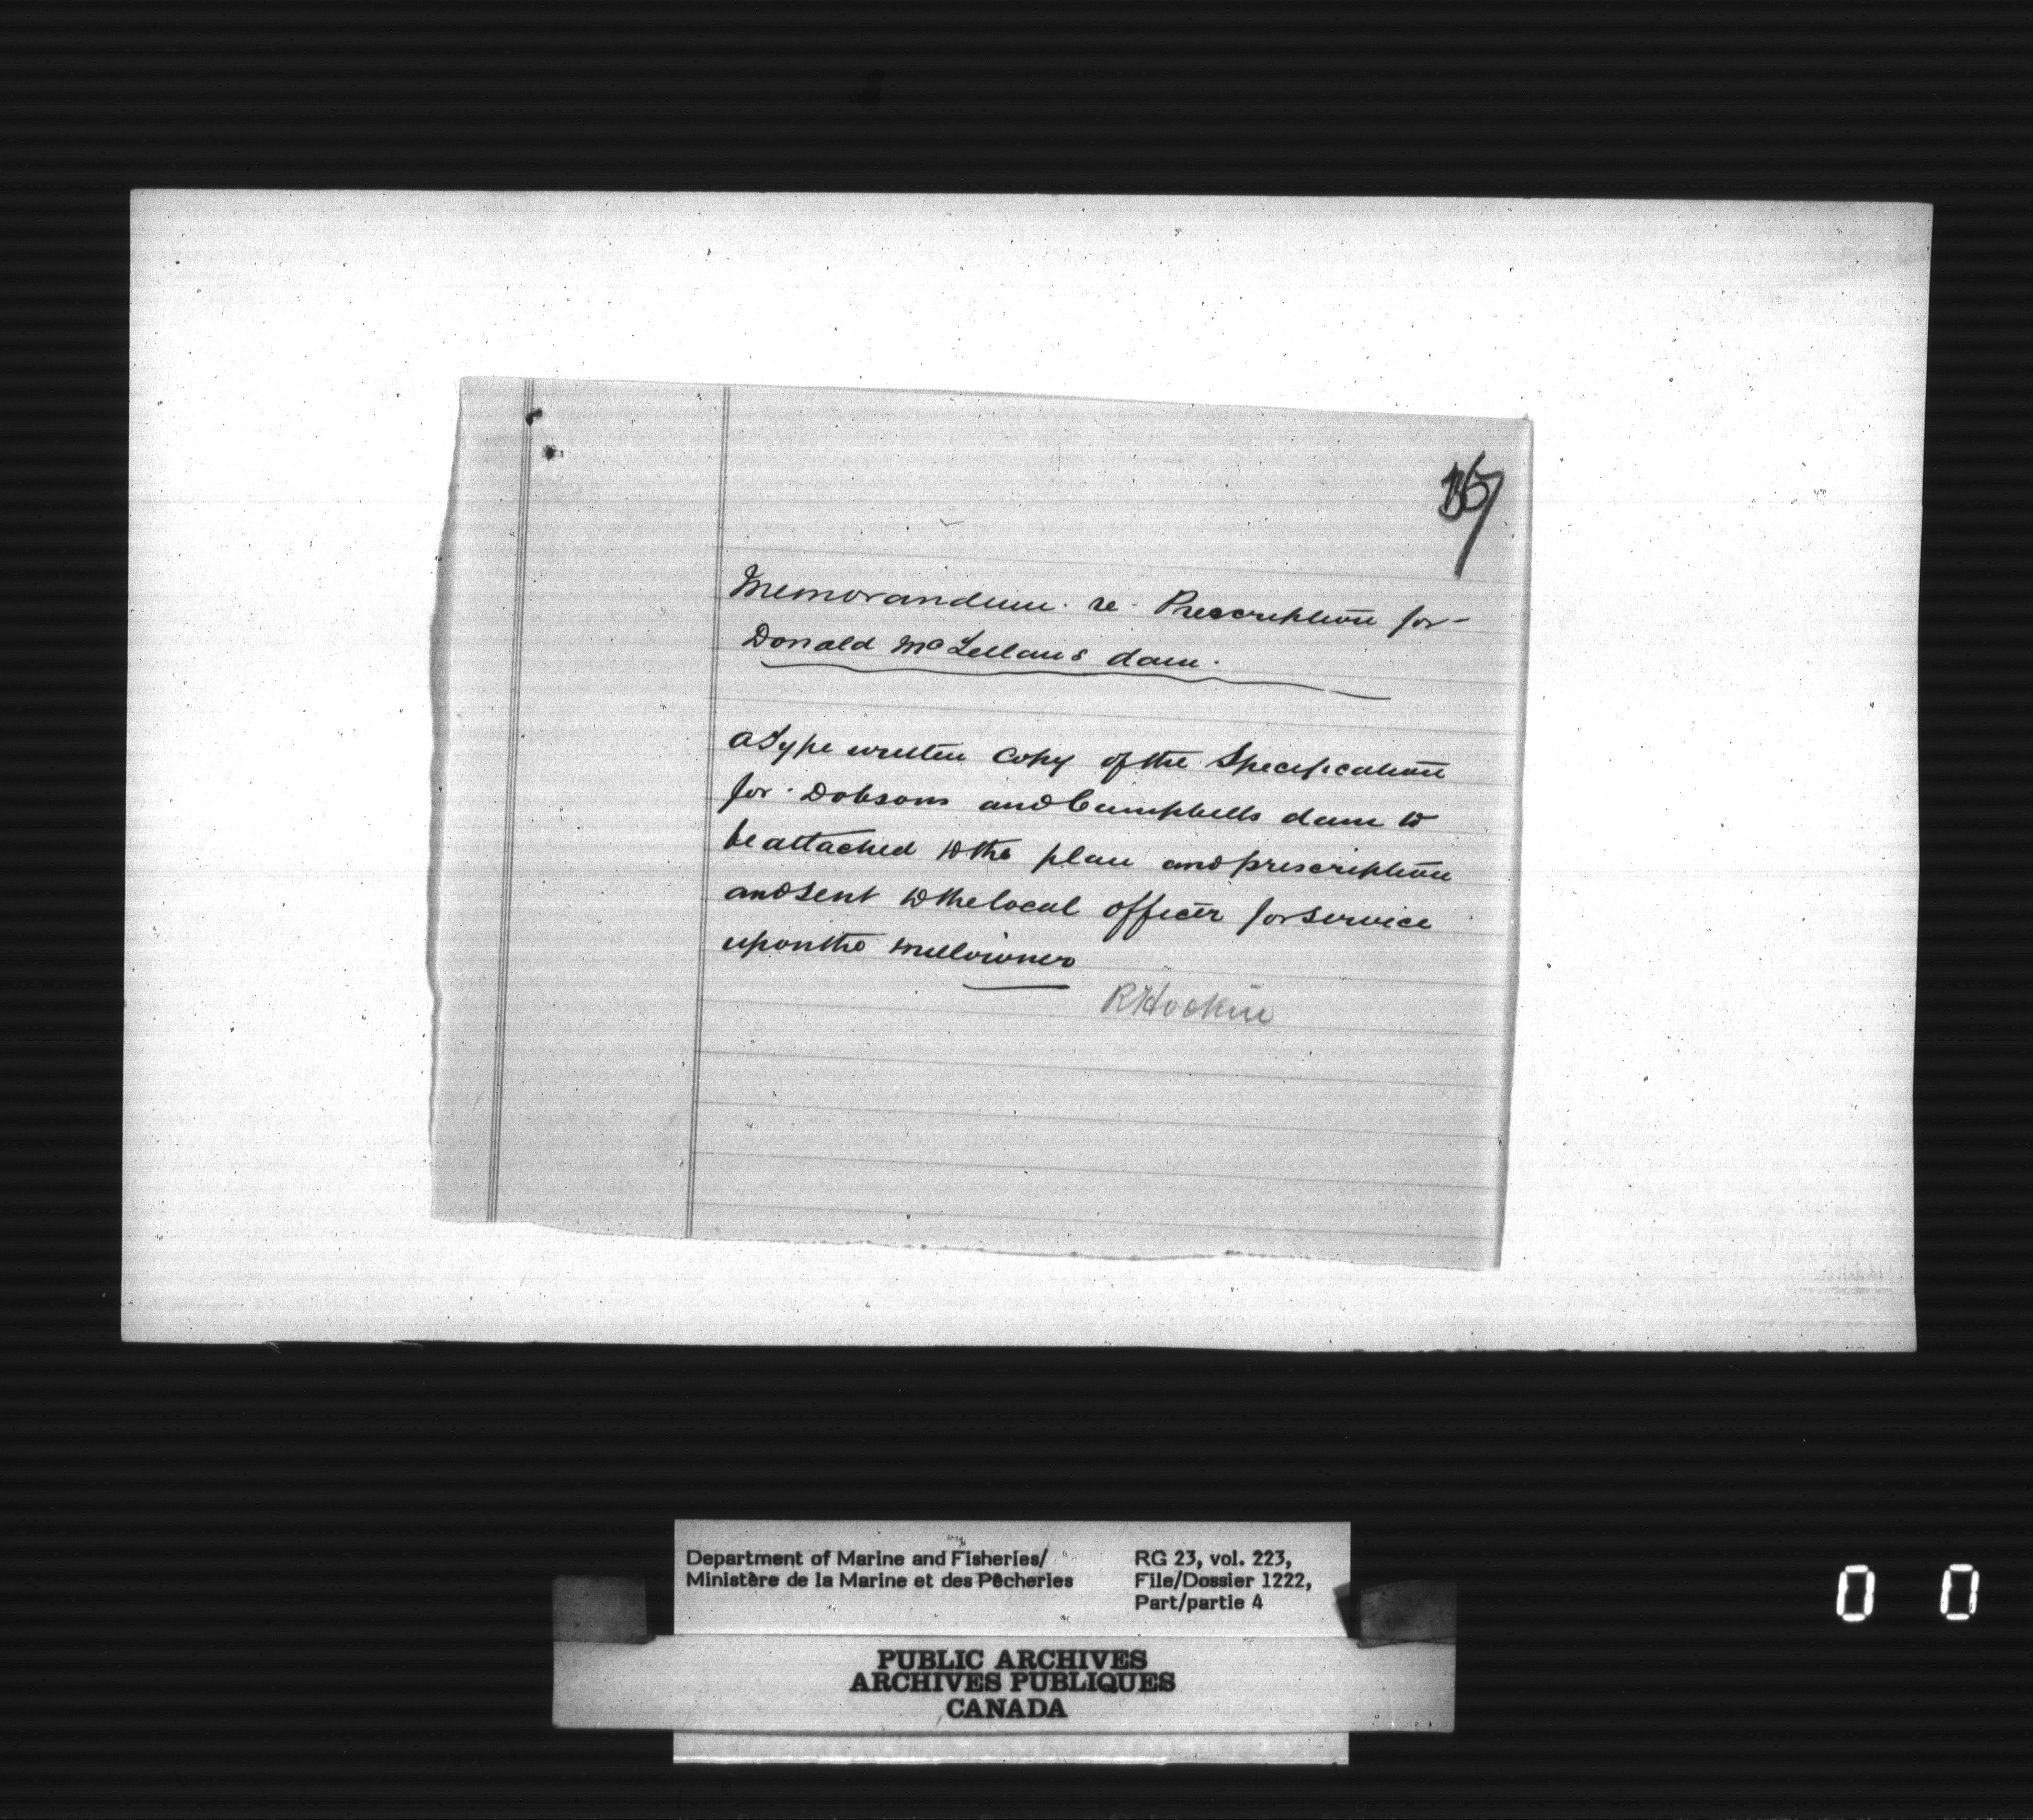 Memorandum. re. Prescription for-
Donald McLellans dam.
A Type written Copy of the Specification
for. Dobsons and Campbells dam to
be attached to the plan and prescription
and sent to the local officer for service
upon the millowner
R Hockin
Department of Marine and Fisheries/
Ministère de la Marine et des Pêcheries
RG 23, vol. 223,
File/Dossier 1222,
Part/partie 4
PUBLIC ARCHIVES
ARCHIVES PUBLIQUES
CANADA
0 0